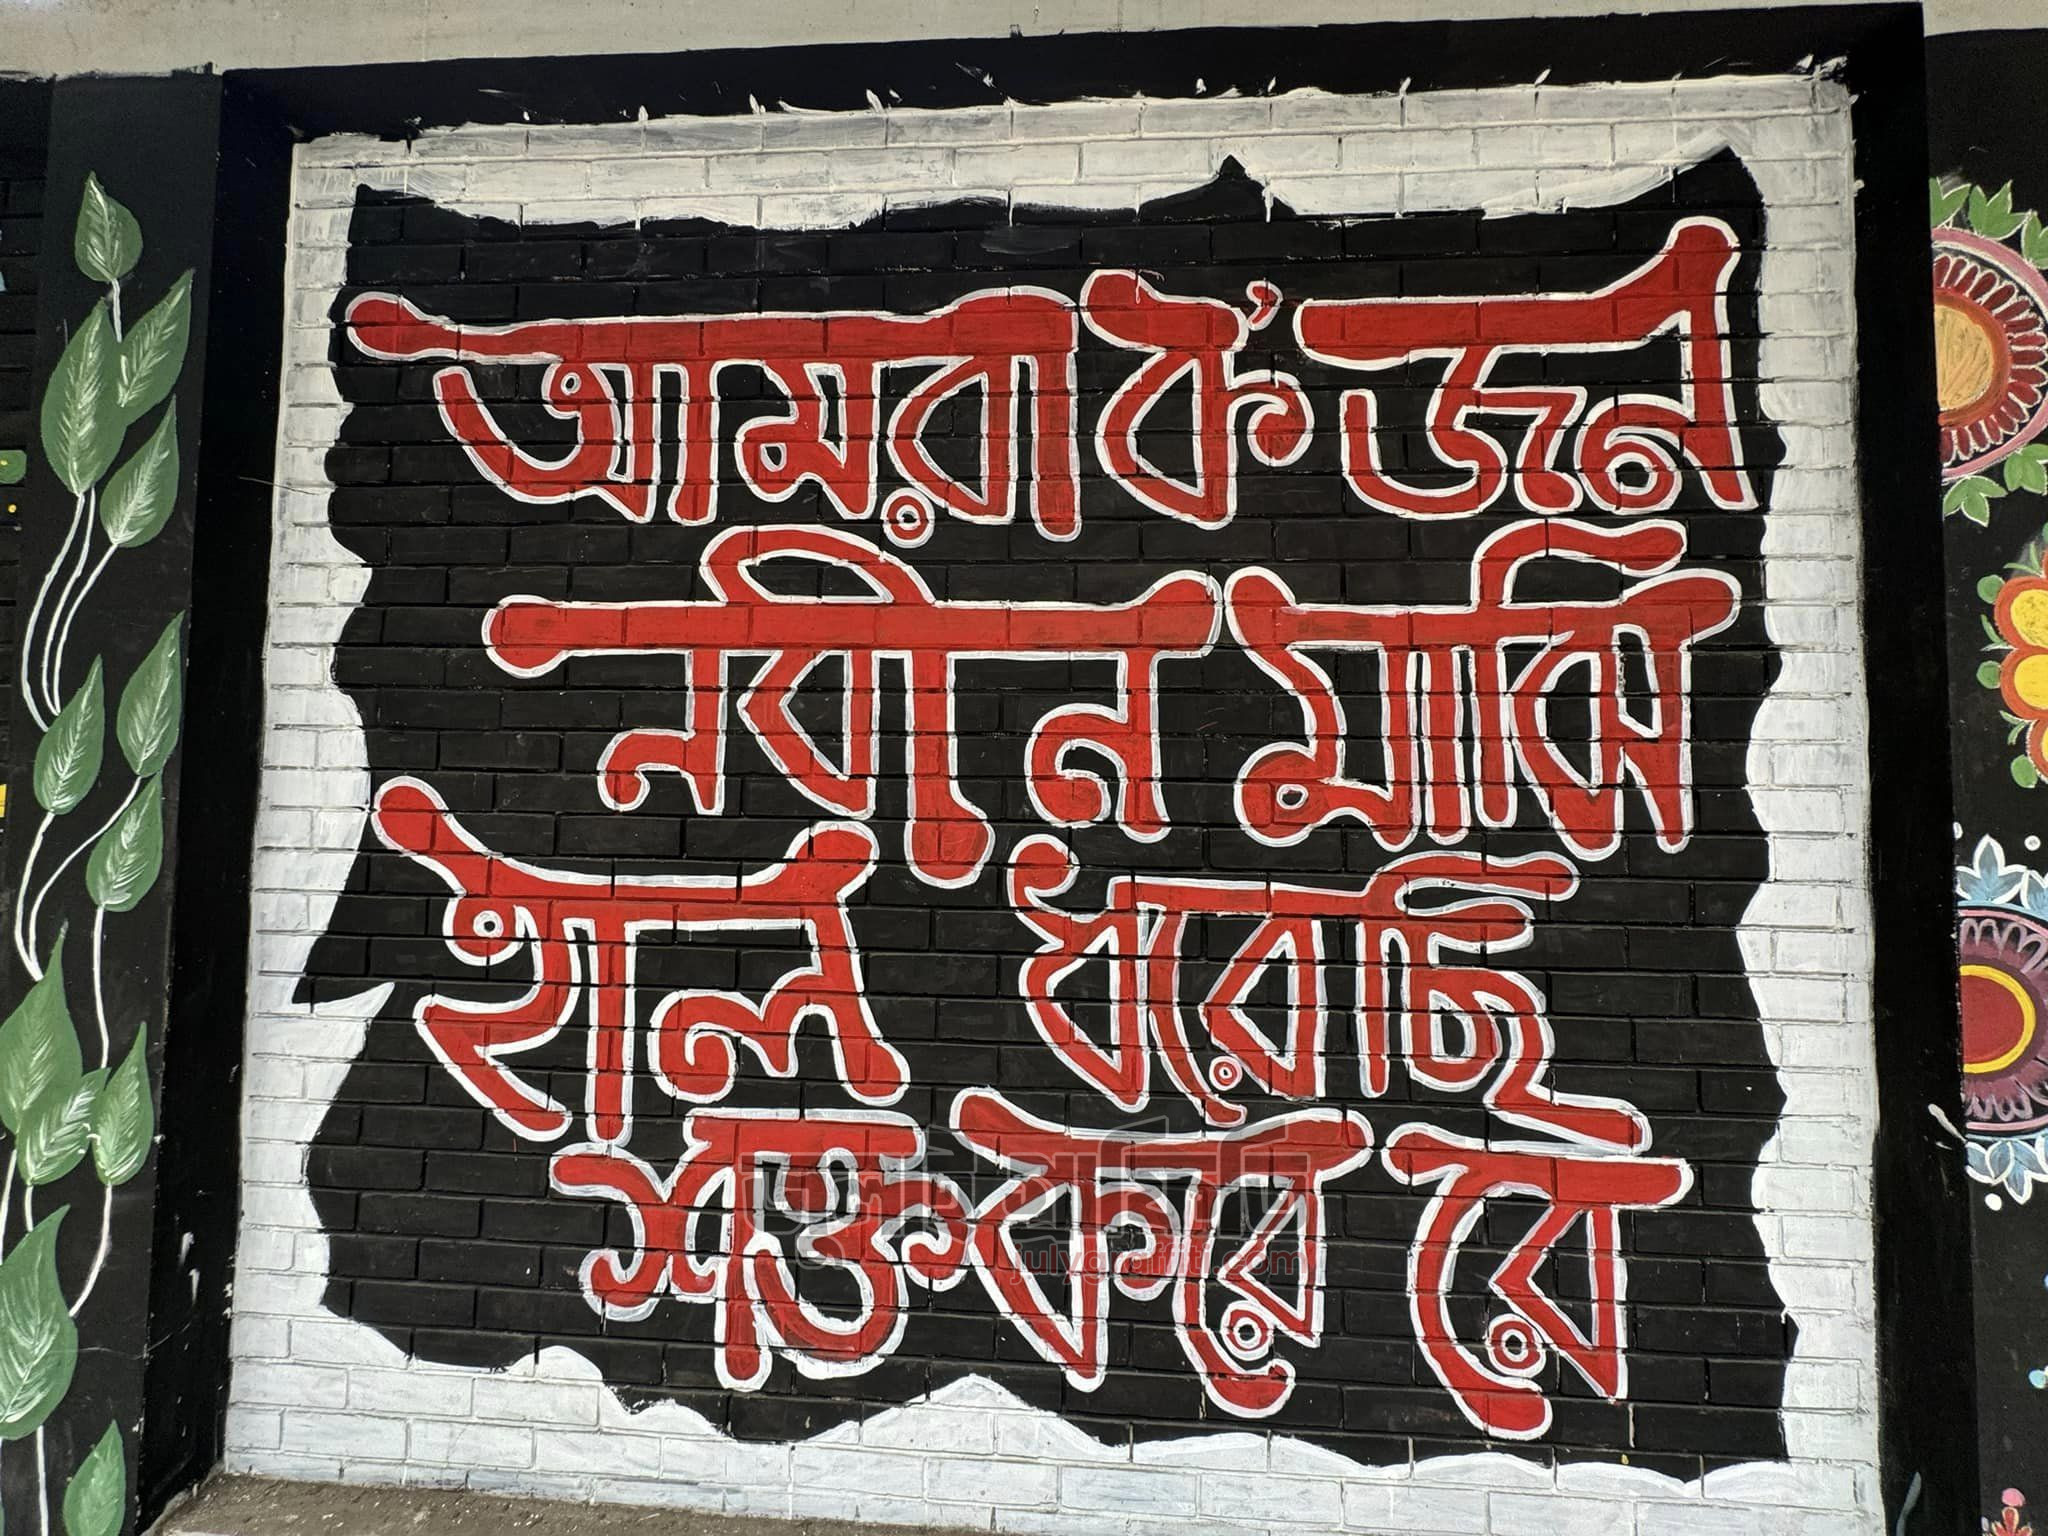 আমরা ক'জন
নবীন মাঝি
হাল ধরেছি
শক্ত করে রে
জুলাই গ্রাফিতি
julygraffiti.com